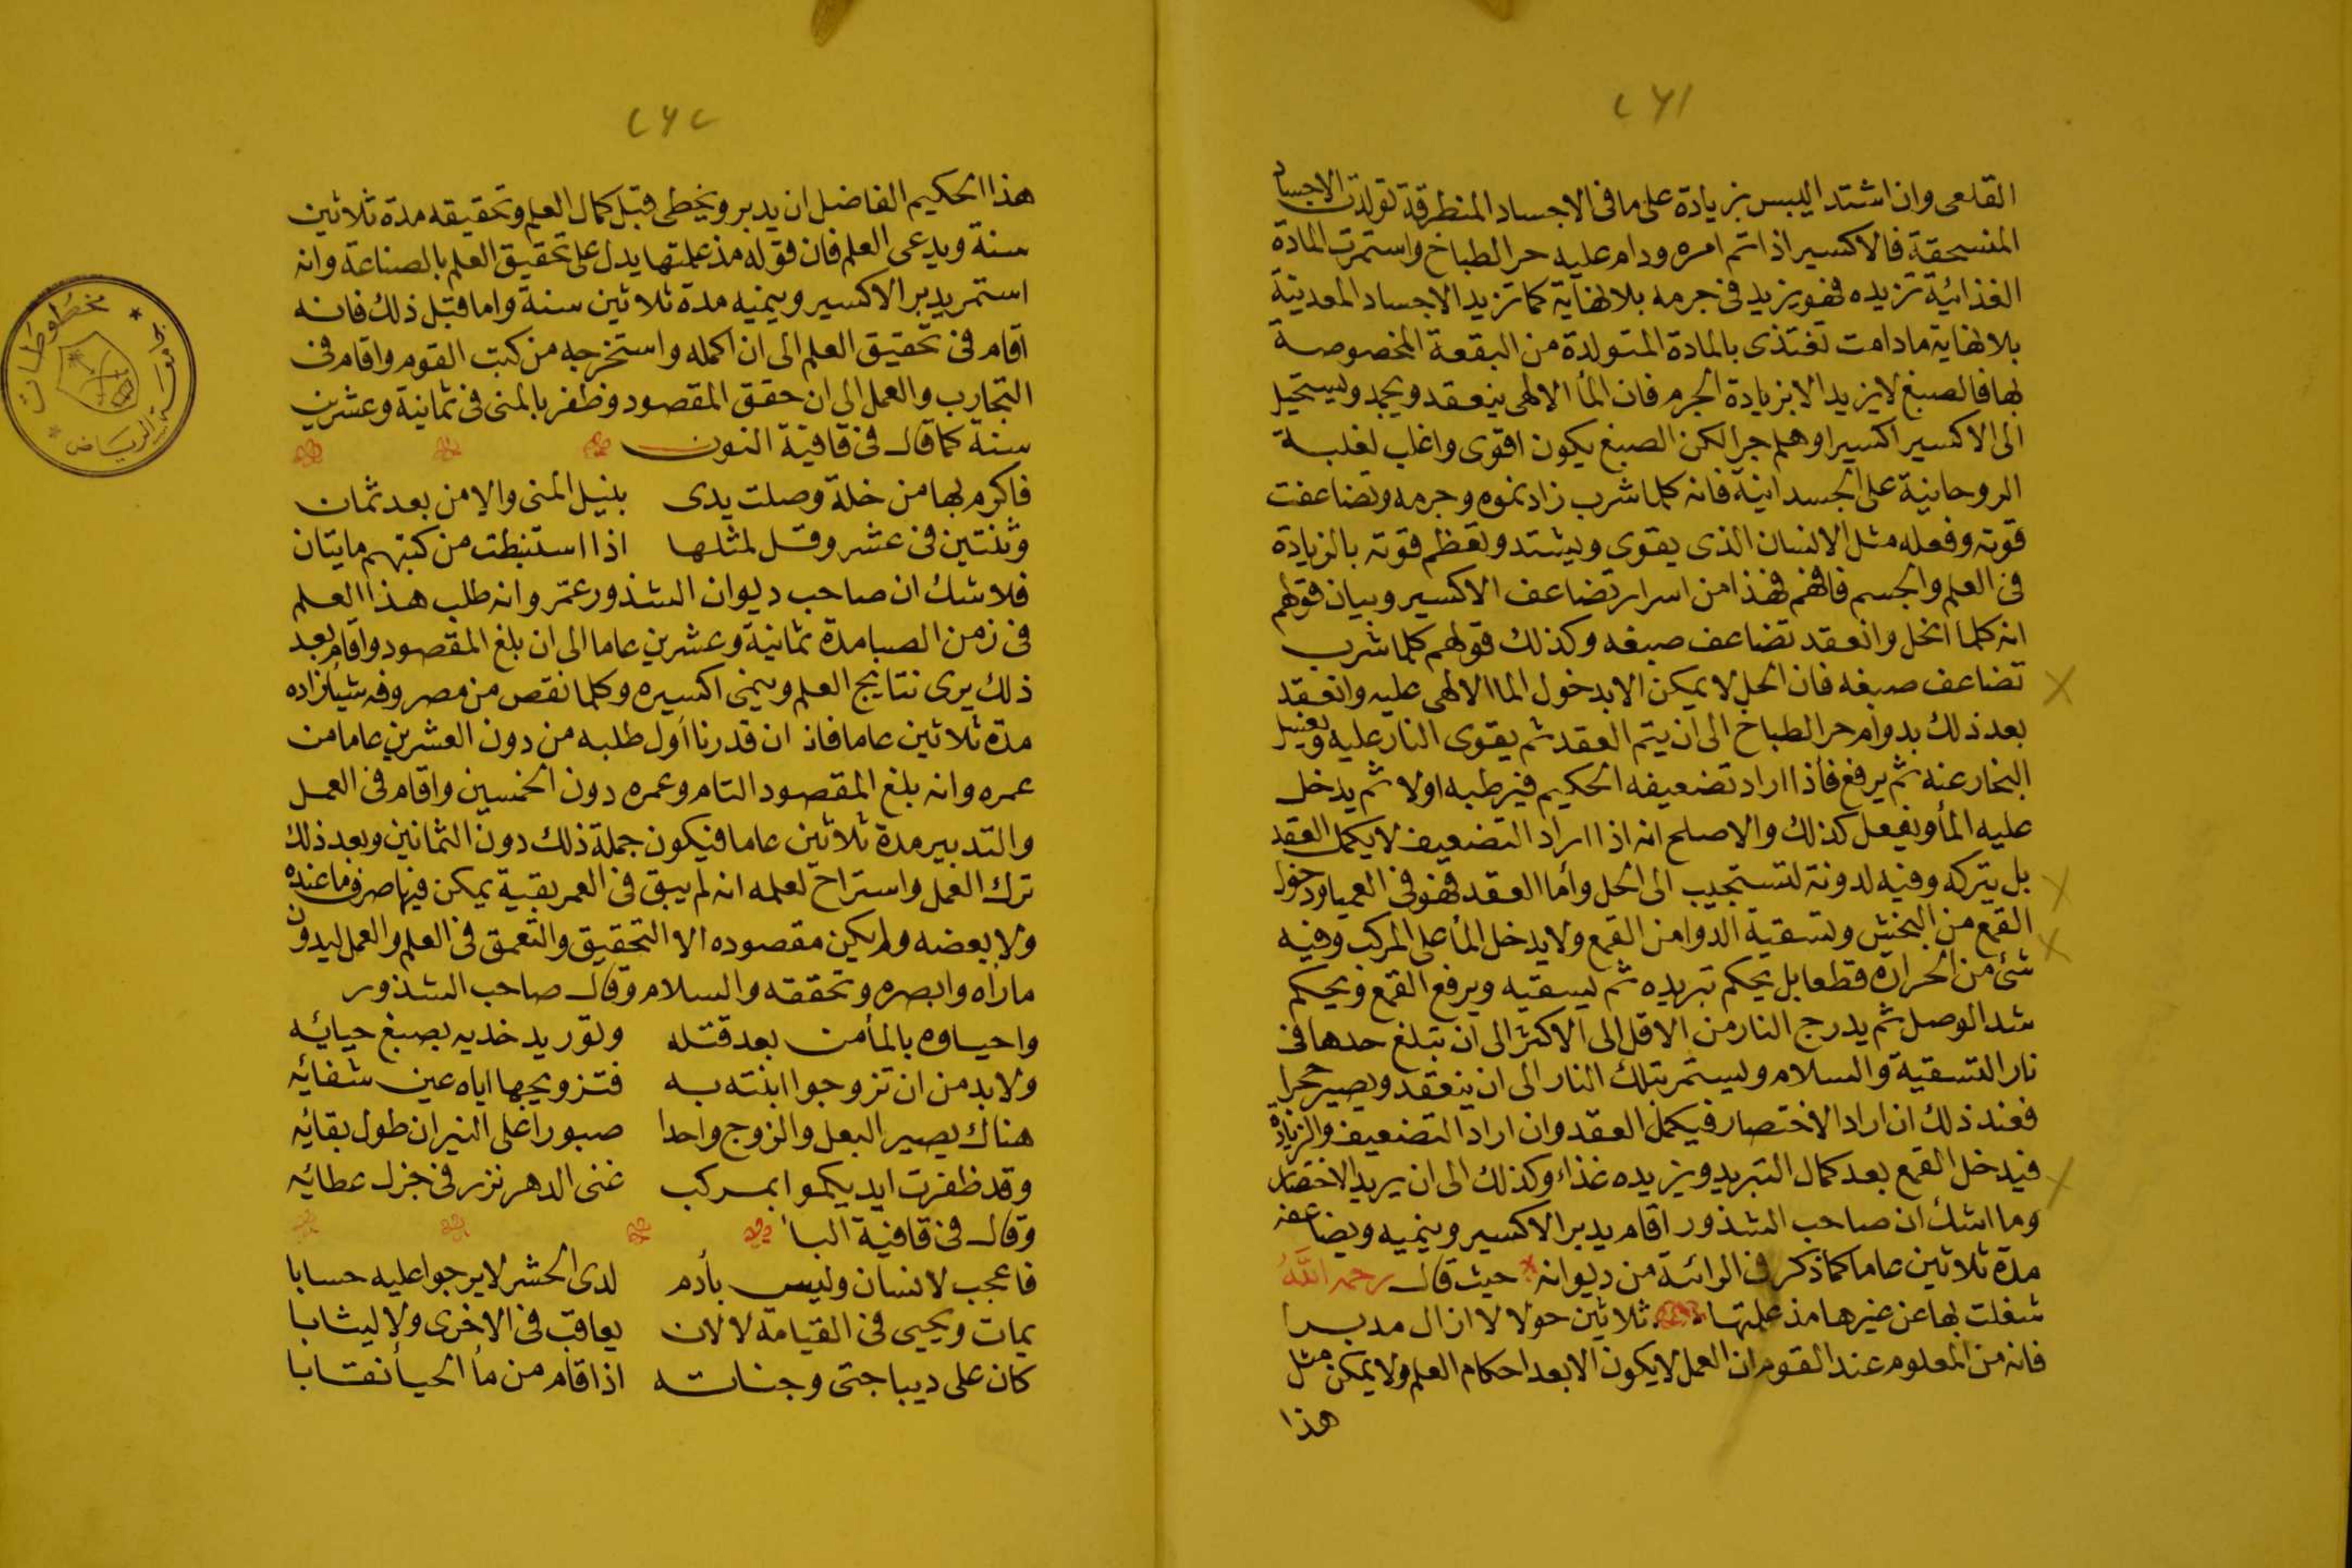 ٢٦١
القلعى وان اشتد اليبس بزيادة على ما فى الاجساد المنطرقة تولدت الاجساد
المنسحقة فالاكسير اذا تم امره ودام عليه حر الطباخ واستمرت المادة
الغذائية تزيده فهو يزيد فى جرمه بلا نهاية كما تزيد الاجساد المعدنية
بلا نهاية ما دامت تغتذى بالمادة المتولدة من البقعة المخصوصة
بها فالصبغ لا يزيد الا بزيادة الجرم فان المأ الالهى ينعقد ويجمد ويستحيل
الى الاكسير اكسيرا وهلم جرا لكن الصبغ يكون اقوى واغلب لغلبة
الروحانية على الجسدانية فانه كلما شرب زاد نموه وجرمه وتضاعفت
قوته وفعله مثل الانسان الذى يقوى ويشتد وتعظم قوته بالزيادة
فى العلم والجسم فافهم فهذا من اسرار تضاعف الاكسير وبيان قولهم
انه كلما انحل وانعقد تضاعف صبغه وكذلك قولهم كلما شرب
تضاعف صبغه فان الحل لا يمكن الا بدخول الما الالهى عليه وانعقد
بعد ذلك بدوام حر الطباخ الى ان يتم العقد ثم يقوى النار عليه
البخار عنه ثم يرفع فأذا اراد تضعيفه الحكيم فيرطبه اولا ثم يدخل
عليه المأ ويفعل كذلك والاصلح انه اذا اراد التضعيف لا يكمل العقد
بل يتركه وفيه لدونة لتستجيب الى الحل وأما العقد فهو فى العميا ودخول
القمع من البخش وتسقية الدوا من القمع ولا يدخل المأ على المركب وفيه
شئ من الحرارة قطعا بل يحكم تبريده ثم يسقيه ويرفع القمع ويحكم
شد الوصل ثم يدرج النار من الاقل الى الاكثر الى ان تبلغ حدها فى
نار التسقية والسلام ويستمر بتلك النار الى ان ينعقد ويصير حجرا
فعند ذلك ان اراد الاختصار فيكمل العقد وان اراد التضعيف والزيادة
فيدخل القمع بعد كمال التبريد ويزيده غذاء وكذلك الى ان يريد الاختصار
وما اشك ان صاحب الشذور اقام يدبر الاكسير وينميه ويضاعفه
مدة ثلاثين عاما كما ذكر فى الرائية من ديوانه حيث قال رحمه الله
شغلت بها عن غيرها مذ علمتها ثلاثين حولا لا ازال مدبرا
فانه من المعلوم عند القوم ان العمل لا يكون الا بعد احكام العلم ولا يمكن مثل
هذا
٢٦٢
هذا الحكيم الفاضل ان يدبر ويخطى قبل كمال العلم وتحقيقه مدة ثلاثين
سنة ويدعى العلم فان قوله مذ علمتها يدل على تحقيق العلم بالصناعة وانه
استمر يدبر الاكسير وينميه مدة ثلاثين سنة واما قبل ذلك فانه
اقام فى تحقيق العلم الى ان اكمله واستخرجه من كتب القوم واقام فى
التجارب والعمل الى ان حقق المقصود وظفر بالمنى فى ثمانية وعشرين
سنة كما قال فى قافية النون
فاكرم بها من خلة وصلت يدى بنيل المنى والامن بعد ثمان
وثنتين فى عشر وقل لمثلها اذا استنبطت من كتبهم مايتان
فلا شك ان صاحب ديوان الشذور عمّر وانه طلب هذا العلم
فى زمن الصبا مدة ثمانية وعشرين عاما الى ان بلغ المقصود واقام بعد
ذلك يرى نتايج العلم وينمى اكسيره وكلما نقص من مصروفه شيأ زاده
مدة ثلاثين عاما فان ان قدرنا أول طلبه من دون العشرين عاما من
عمره وانه بلغ المقصود التام وعمره دون الخمسين واقام فى العمل
والتدبير مدة ثلاثين عاما فيكون جملة ذلك دون الثمانين وبعد ذلك
ترك العمل واستراح لعلمه انه لم يبق فى العمر بقية يمكن فيها صرف ما عنده
ولا بعضه ولم يكن مقصوده الا التحقيق والتعمق فى العلم والعمل ليدون
ما رأه وابصره وتحققه والسلام وقال صاحب الشذور
واحياوه بالمأ من بعد قتله وتوريد خديه بصبغ حيائه
ولا بد من ان تزوجوا ابنته به فتزويجها اياه عين شفائه
هناك يصير البعل والزوج واحدا صبورا على النيران طول بقائه
وقد ظفرت ايديكموا بمركب غنى الدهر نزر فى جزل عطائه
وقال فى قافية البأ
فاعجب لانسان وليس بأدم لدى الحشر لا يرجوا عليه حسابا
يمات ويحيى فى القيامة لا لان يعاقب فى الاخرى ولا ليثابا
كان على ديباجتى وجناته اذا قام من مأ الحيأ نقابا
مخطوطات
جامعة الرياض